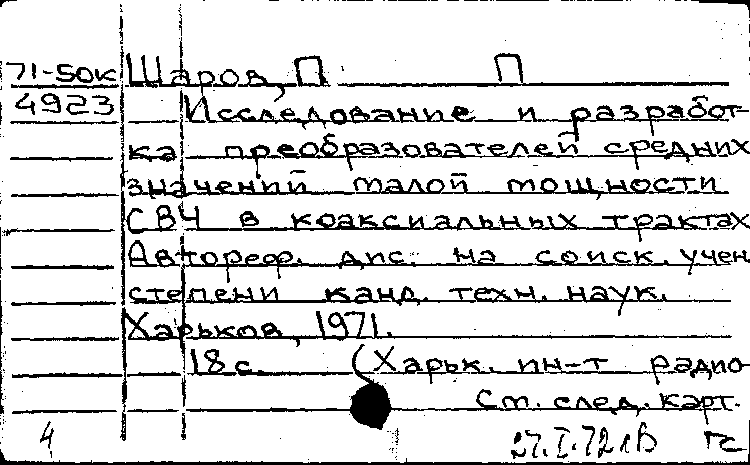 71-50к Шаров, П П
4923 Исследование и разработ-
ка преобразователей средних
значений малой мощности
СВЧ в коаксиальных трактах
Автореф. дис. на соиск. учен
степени канд. техн. наук.
Харьков, 1971.
18 с. (Харьк. ин-т радио-
См. след. карт.
4 27.I.72 ГС